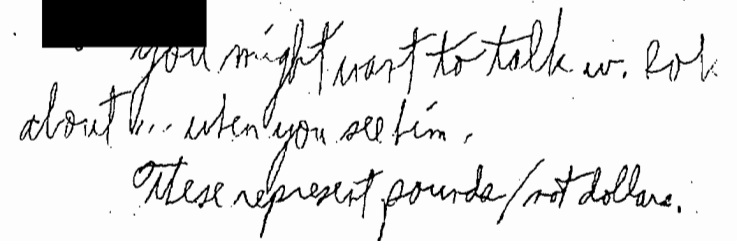 you might want to talk w. Bob
about ... when you see him.
These represent pounds/not dollars.